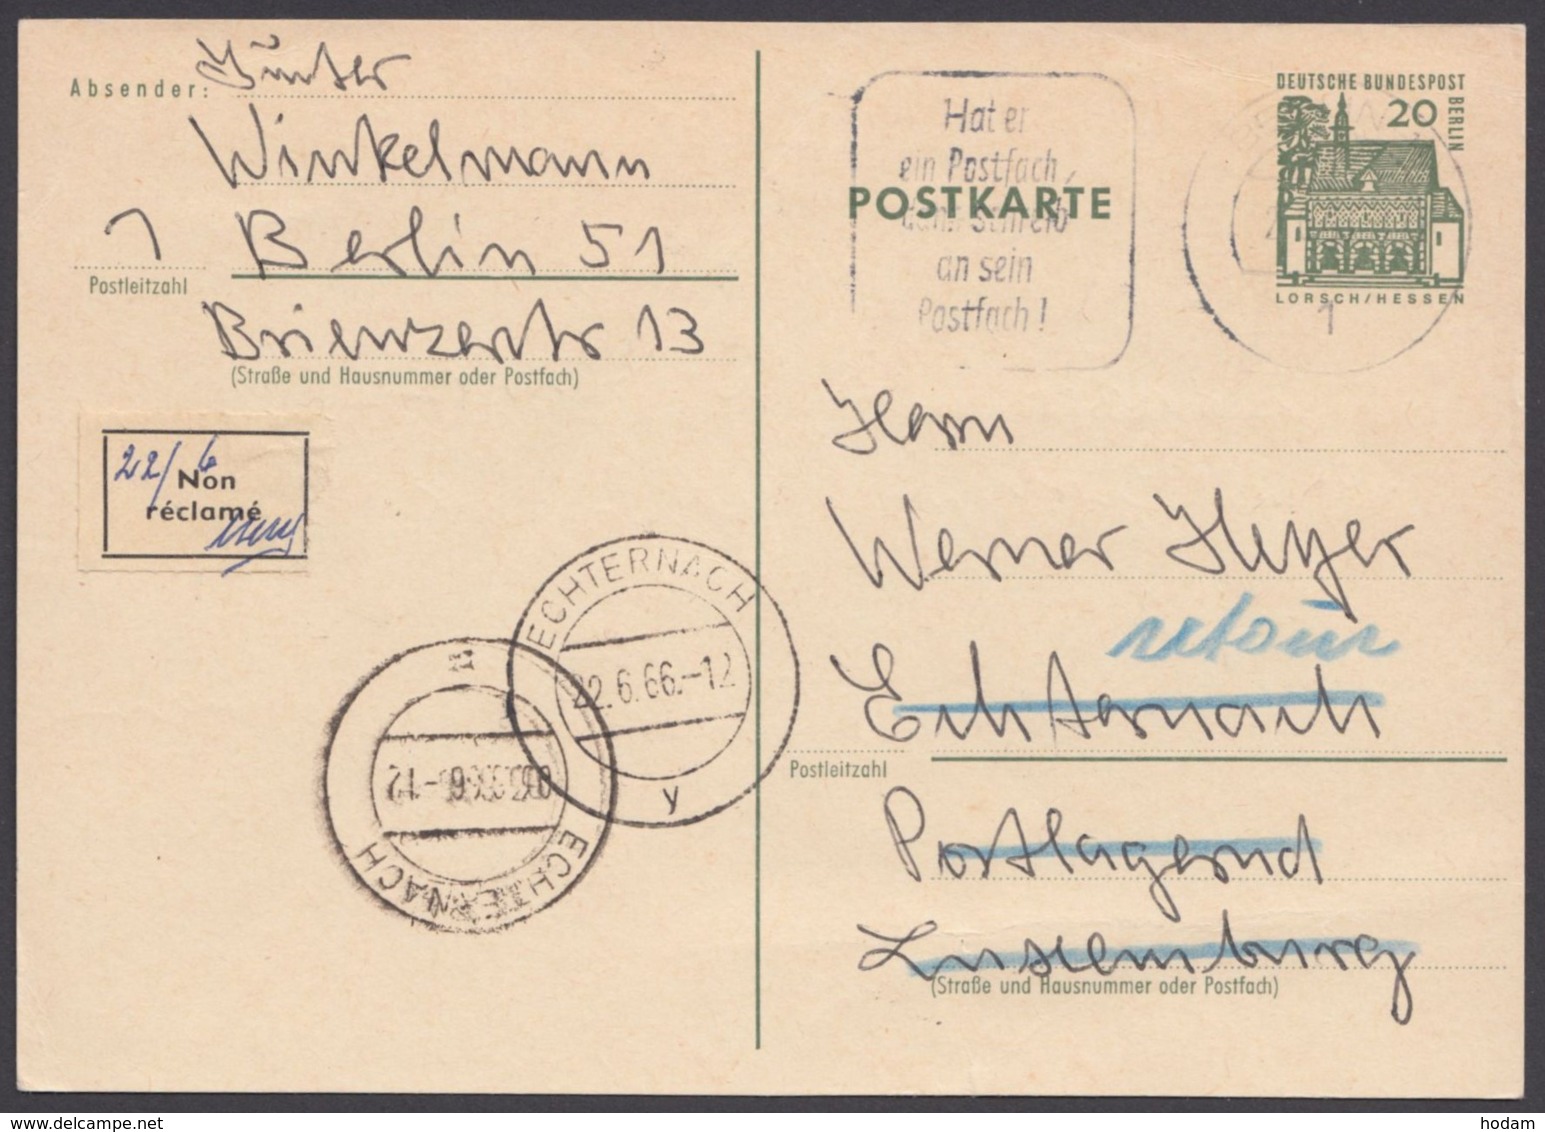 Absender: Günter
Winkelmann
1 Berlin 51
Postleitzahl
Brienzerstr 13
(Straße und Hausnummer oder Postfach)
22/6
Non
réclamé
ECHTERNACH
22.6.66.-12
y
ECHTERNACH
DEUTSCHE BUNDESPOST
BERLIN
20
LORSCH/HESSEN
1
Hat er
ein Postfach,
dann schreib
an sein
Postfach!
POSTKARTE
Herrn
Werner Heyer
retour
Echternach
Postleitzahl
Postlagernd
Luxemburg
(Straße und Hausnummer oder Postfach)
hodam